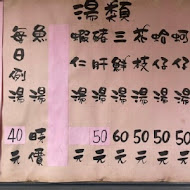 湯類
每日例湯 40元
魚湯 時價
蝦仁湯
豬肝湯 50元
三鮮湯 60元
花枝湯 50元
蛤仔湯 50元
蚵仔湯 50元